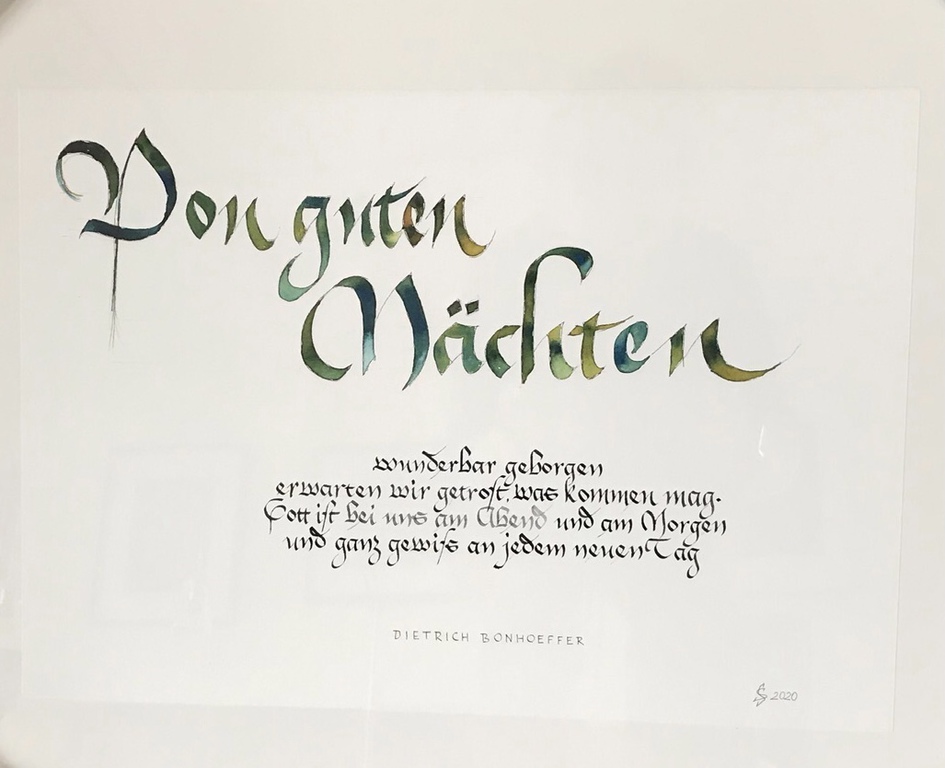 Von guten
Mächten
wunderbar geborgen
erwarten wir getrost, was kommen mag.
Gott ist bei uns am Abend und am Morgen
und ganz gewiſs an jedem neuen Tag
DIETRICH BONHOEFFER
2020